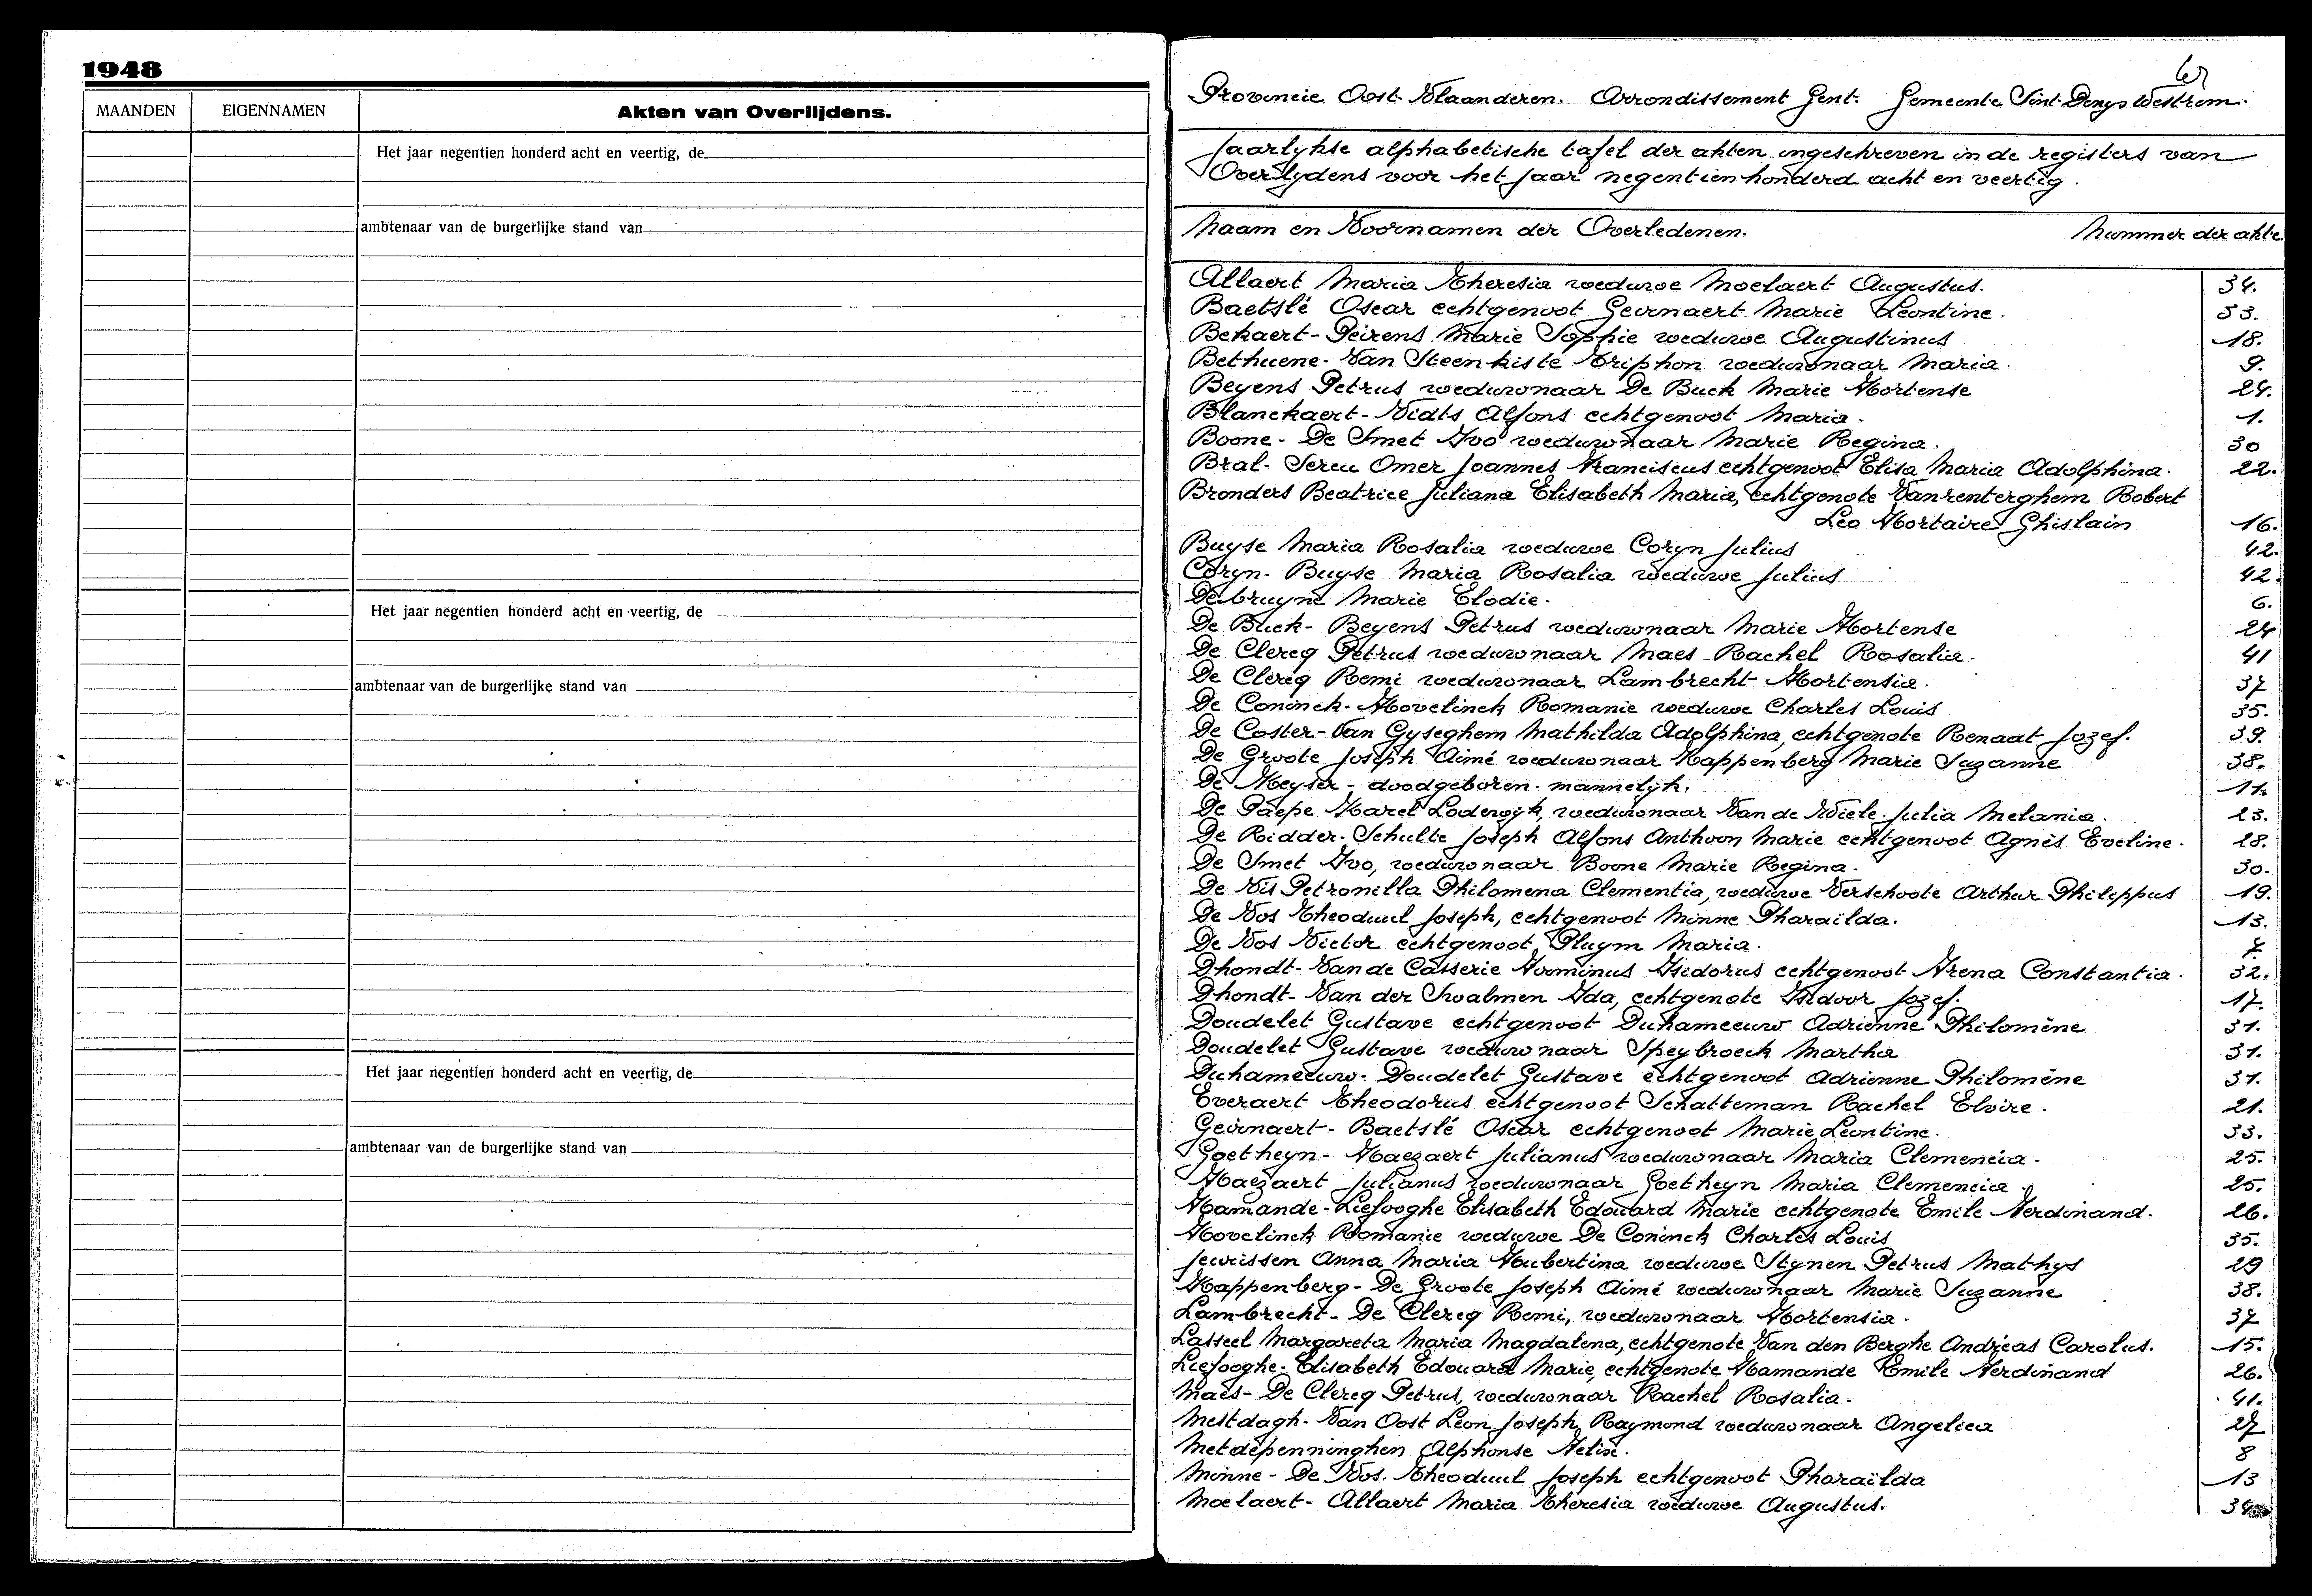 1948
MAANDEN EIGENNAMEN Akten van Overlijdens.
Het jaar negentien honderd acht en veertig, de
ambtenaar van de burgerlijke stand van
Het jaar negentien honderd acht en veertig, de
ambtenaar van de burgerlijke stand van
Het jaar negentien honderd acht en veertig, de
ambtenaar van de burgerlijke stand van
Provincie Oost-Vlaanderen. Arrondissement Gent. Gemeente Sint-Denys Westrem.
Jaarlykse alphabetische tafel der akten ingeschreven in de registers van
Overlydens voor het jaar negentienhonderd acht en veertig.
Naam en Voornamen der Overledenen. Nummer der akte.
Allaert Maria Theresia weduwe Moelaert Augustus. 34.
Baetslé Oscar echtgenoot Gevrnaert Marie Léontine. 33.
Bekaert-Peirens Marie Sophie weduwe Augustinus 18.
Bethuene-Van Steenkiste Triphon weduwnaar Maria. 9.
Beyens Petrus weduwnaar De Buck Marie Hortense 24.
Blanckaert-Vidts Alfons echtgenoot Maria. 1.
Boone-De Smet Ivo weduwnaar Marie Regina. 30
Bral-Sereu Omer Joannes Franciscus echtgenoot Elisa Maria Adolphina. 22.
Bronders Beatrice Juliana Elisabeth Maria, echtgenote Vanrenterghem Robert
Leo Hortaire Ghislain 16.
Buyse Maria Rosalia weduwe Coryn Julius 42.
Coryn-Buyse Maria Rosalia weduwe Julius 42.
Debruyne Marie Elodie. 6.
De Buck-Beyens Petrus weduwnaar Marie Hortense 24
De Clercq Petrus weduwnaar Maes Rachel Rosalia. 41
De Clercq Remi weduwnaar Lambrecht Hortensia. 37
De Coninck-Hovelinck Romanie weduwe Charles Louis 35.
De Coster-Van Gyseghem Mathilda Adolphina, echtgenote Renaat Jozef. 39.
De Groote Joseph Aimé weduwnaar Kappenberg Marie Suzanne 38.
De Keyser-doodgeboren-mannelyk. 11.
De Paepe Karel Lodewyk, weduwnaar Van de Wiele Julia Melania. 23.
De Ridder-Schulte Joseph Alfons Anthoon Marie echtgenoot Agnès Eveline. 28.
De Smet Ivo, weduwnaar Boone Marie Regina. 30.
De Vis Petronilla Philomena Clementia, weduwe Verschoote Arthur Philippus 19.
De Vos Theoduul Joseph, echtgenoot Minne Pharaïlda. 13.
De Vos Victor echtgenoot Pluym Maria. 7.
Dhondt-Van de Casserie Firminus Isidorus echtgenoot Irena Constantia. 32.
Dhondt-Van der Swalmen Ida, echtgenote Isidoor Jozef. 17.
Doudelet Gustave echtgenoot Duhameeuw Adrienne Philomène 31.
Doudelet Gustave weduwnaar Speybroeck Martha 31.
Duhameeuw-Doudelet Gustave echtgenoot Adrienne Philomène 31.
Everaert Theodorus echtgenoot Schatteman Rachel Elvire. 21.
Gevrnaert-Baetslé Oscar echtgenoot Marie Léontine. 33.
Goetheyn-Haezaert Julianus weduwnaar Maria Clemencia. 25.
Haezaert Julianus weduwnaar Goetheyn Maria Clemencia. 25.
Hamande-Liefooghe Elisabeth Edouard Marie echtgenote Emile Ferdinand. 26.
Hovelinck Romanie weduwe De Coninck Charles Louis 35.
Jeurissen Anna Maria Hubertina weduwe Stynen Petrus Mathys 29
Kappenberg-De Groote Joseph Aimé weduwnaar Marie Suzanne 38.
Lambrecht-De Clercq Remi, weduwnaar Hortensia. 37
Lasseel Margareta Maria Magdalena, echtgenote Van den Berghe Andréas Carolus. 15.
Liefooghe-Elisabeth Edouard Marie, echtgenote Hamande Emile Ferdinand 26.
Maes-De Clercq Petrus, weduwnaar Rachel Rosalia. 41.
Mestdagh-Van Oost Leon Joseph Raymond weduwnaar Angelica 27
Metdepenninghen Alphonse Felix. 8
Minne-De Vos. Theoduul Joseph echtgenoot Pharaïlda 13
Moelaert-Allaert Maria Theresia weduwe Augustus. 34